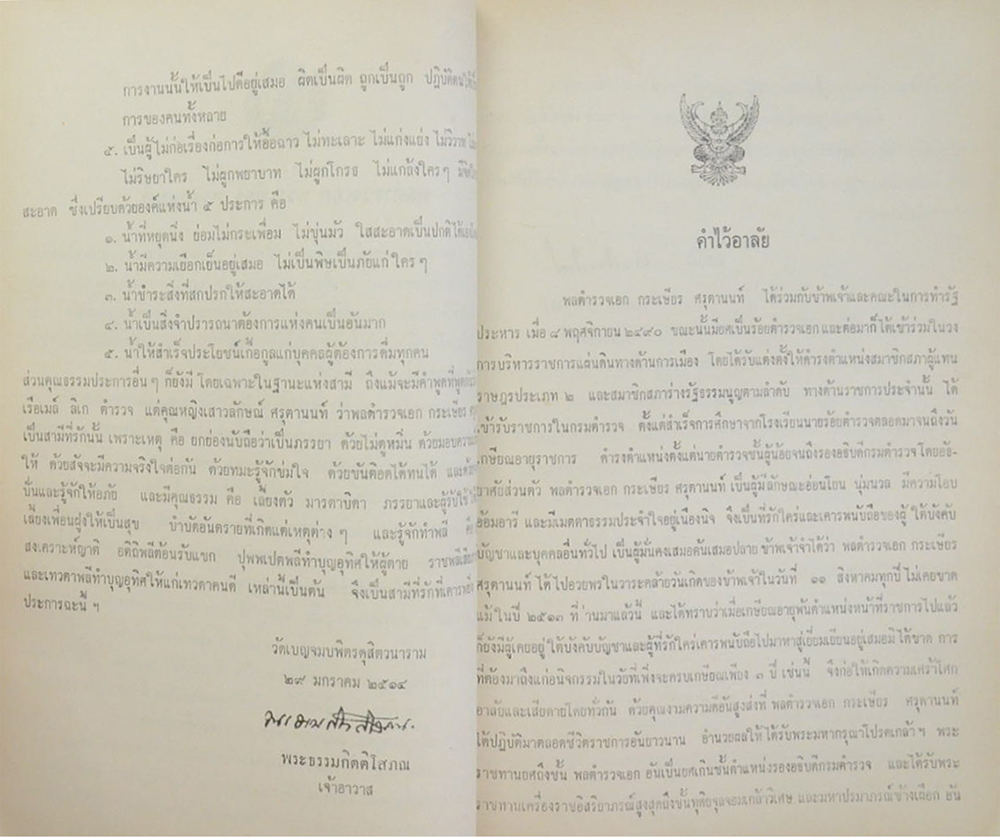 การงานนั้นให้เป็นไปดีอยู่เสมอ ผิดเป็นผิด ถูกเป็นถูก ปฏิบัติตนให้
การของคนทั้งหลาย
๕. เป็นผู้ไม่ก่อเรื่องก่อการให้อื้อฉาว ไม่ทะเลาะ ไม่แก่งแย่ง ไม่วิวาท
ไม่ริษยาใคร ไม่ผูกพยาบาท ไม่ผูกโกรธ ไม่แกล้งใครๆ
สะอาด ซึ่งเปรียบด้วยองค์แห่งน้ำ ๕ ประการ คือ
๑. น้ำที่หยุดนิ่ง ย่อมไม่กระเพื่อม ไม่ขุ่นมัว ใสสะอาดเป็นปกติได้
๒. น้ำมีความเยือกเย็นอยู่เสมอ ไม่เป็นพิษเป็นภัยแก่ใครๆ
๓. น้ำชำระสิ่งที่สกปรกให้สะอาดได้
๔. น้ำเป็นสิ่งจำปรารถนาต้องการแห่งคนเป็นอันมาก
๕. น้ำให้สำเร็จประโยชน์เกื้อกูลแก่บุคคลผู้ต้องการดื่มทุกคน
ส่วนคุณธรรมประการอื่นๆ ก็ยังมี โดยเฉพาะในฐานะแห่งสามี ถึงแม้จะมีคำพูดที่พูดกัน
เรือเมล์ ลิเก ตำรวจ แต่คุณหญิงเสาวลักษณ์ ศรุตานนท์ ว่าพลตำรวจเอก กระเษียร
เป็นสามีที่รักนั้น เพราะเหตุ คือ ยกย่องนับถือว่าเป็นภรรยา ด้วยไม่ดูหมิ่น ด้วยมอบความ
ให้ ด้วยสัจจะมีความจริงใจต่อกัน ด้วยทมะรู้จักข่มใจ ด้วยขันติอดได้ทนได้
ปันและรู้จักให้อภัย และมีคุณธรรม คือ เลี้ยงตัว มารดาบิดา ภรรยาและผู้รับใช้
เลี้ยงเพื่อนฝูงให้เป็นสุข บำบัดอันตรายที่เกิดแต่เหตุต่างๆ และรู้จักทำพลี คือ
สงเคราะห์ญาติ อติถิพลีต้อนรับแขก ปุพพเปตพลีทำบุญอุทิศให้ผู้ตาย
และเทวตาพลีทำบุญอุทิศให้แก่เทวดาคนดี เหล่านี้เป็นต้น จึงเป็นสามีที่รักที่เคารพ
ประการฉะนี้ฯ
วัดเบญจมบพิตรดุสิตวนาราม
๒๙ มกราคม ๒๕๑๔
พระธรรมกิตติโสภณ
เจ้าอาวาส
คำไว้อาลัย
พลตำรวจเอก กระเษียร ศรุตานนท์ ได้ร่วมกับข้าพเจ้าและคณะในการทำรัฐ
ประหาร เมื่อ ๘ พฤศจิกายน ๒๔๙๐ ขณะนั้นมียศเป็นร้อยตำรวจเอก และต่อมาก็ได้เข้าร่วมในวง
การบริหารราชการแผ่นดินทางด้านการเมือง โดยได้รับแต่งตั้งให้ดำรงตำแหน่งสมาชิกสภาผู้แทน
ราษฎรประเภท ๒ และสมาชิกสภาร่างรัฐธรรมนูญตามลำดับ ทางด้านราชการประจำนั้น ได้
เข้ารับราชการในกรมตำรวจ ตั้งแต่สำเร็จการศึกษาจากโรงเรียนนายร้อยตำรวจตลอดมาจนถึงวัน
เกษียณอายุราชการ ดำรงตำแหน่งตั้งแต่นายตำรวจชั้นผู้น้อยจนถึงรองอธิบดีกรมตำรวจ โดยอัธ-
ยาศัยส่วนตัว พลตำรวจเอก กระเษียร ศรุตานนท์ เป็นผู้มีลักษณะอ่อนโยน นุ่มนวล มีความโอบ
อ้อมอารี และมีเมตตาธรรมประจำใจอยู่เนืองนิจ จึงเป็นที่รักใคร่และเคารพนับถือของผู้ใต้บังคับ
บัญชาและบุคคลอื่นทั่วไป เป็นผู้มั่นคงเสมอต้นเสมอปลาย ข้าพเจ้าจำได้ว่า พลตำรวจเอก กระเษียร
ศรุตานนท์ ได้ไปอวยพรในวาระคล้ายวันเกิดของข้าพเจ้าในวันที่ ๑๑ สิงหาคมทุกปี ไม่เคยขาด
แม้ในปี ๒๕๑๓ ที่ ่านมาแล้วนี้ และได้ทราบว่าเมื่อเกษียณอายุพ้นตำแหน่งหน้าที่ราชการไปแล้ว
ก็ยังมีผู้เคยอยู่ใต้บังคับบัญชาและผู้ที่รักใคร่เคารพนับถือไปมาหาสู่เยี่ยมเยียนอยู่เสมอมิได้ขาด การ
ที่ต้องมาถึงแก่อนิจกรรมในวัยที่เพิ่งจะครบเกษียณเพียง ๓ ปี เช่นนี้ จึงก่อให้เกิดความเศร้าโศก
อาลัยและเสียดายโดยทั่วกัน ด้วยคุณงามความดีอันสูงส่งที่ พลตำรวจเอก กระเษียร ศรุตานนท์
ได้ปฏิบัติมาตลอดชีวิตราชการอันยาวนาน อำนวยผลให้ได้รับพระมหากรุณาโปรดเกล้าฯ พระ
ราชทานยศถึงชั้น พลตำรวจเอก อันเป็นยศเกินชั้นตำแหน่งรองอธิบดีกรมตำรวจ และได้รับพระ
ราชทานเครื่องราชอิสริยาภรณ์สูงสุดถึงชั้นทุติยจุลจอมเกล้าวิเศษ และมหาปรมาภรณ์ช้างเผือก อัน